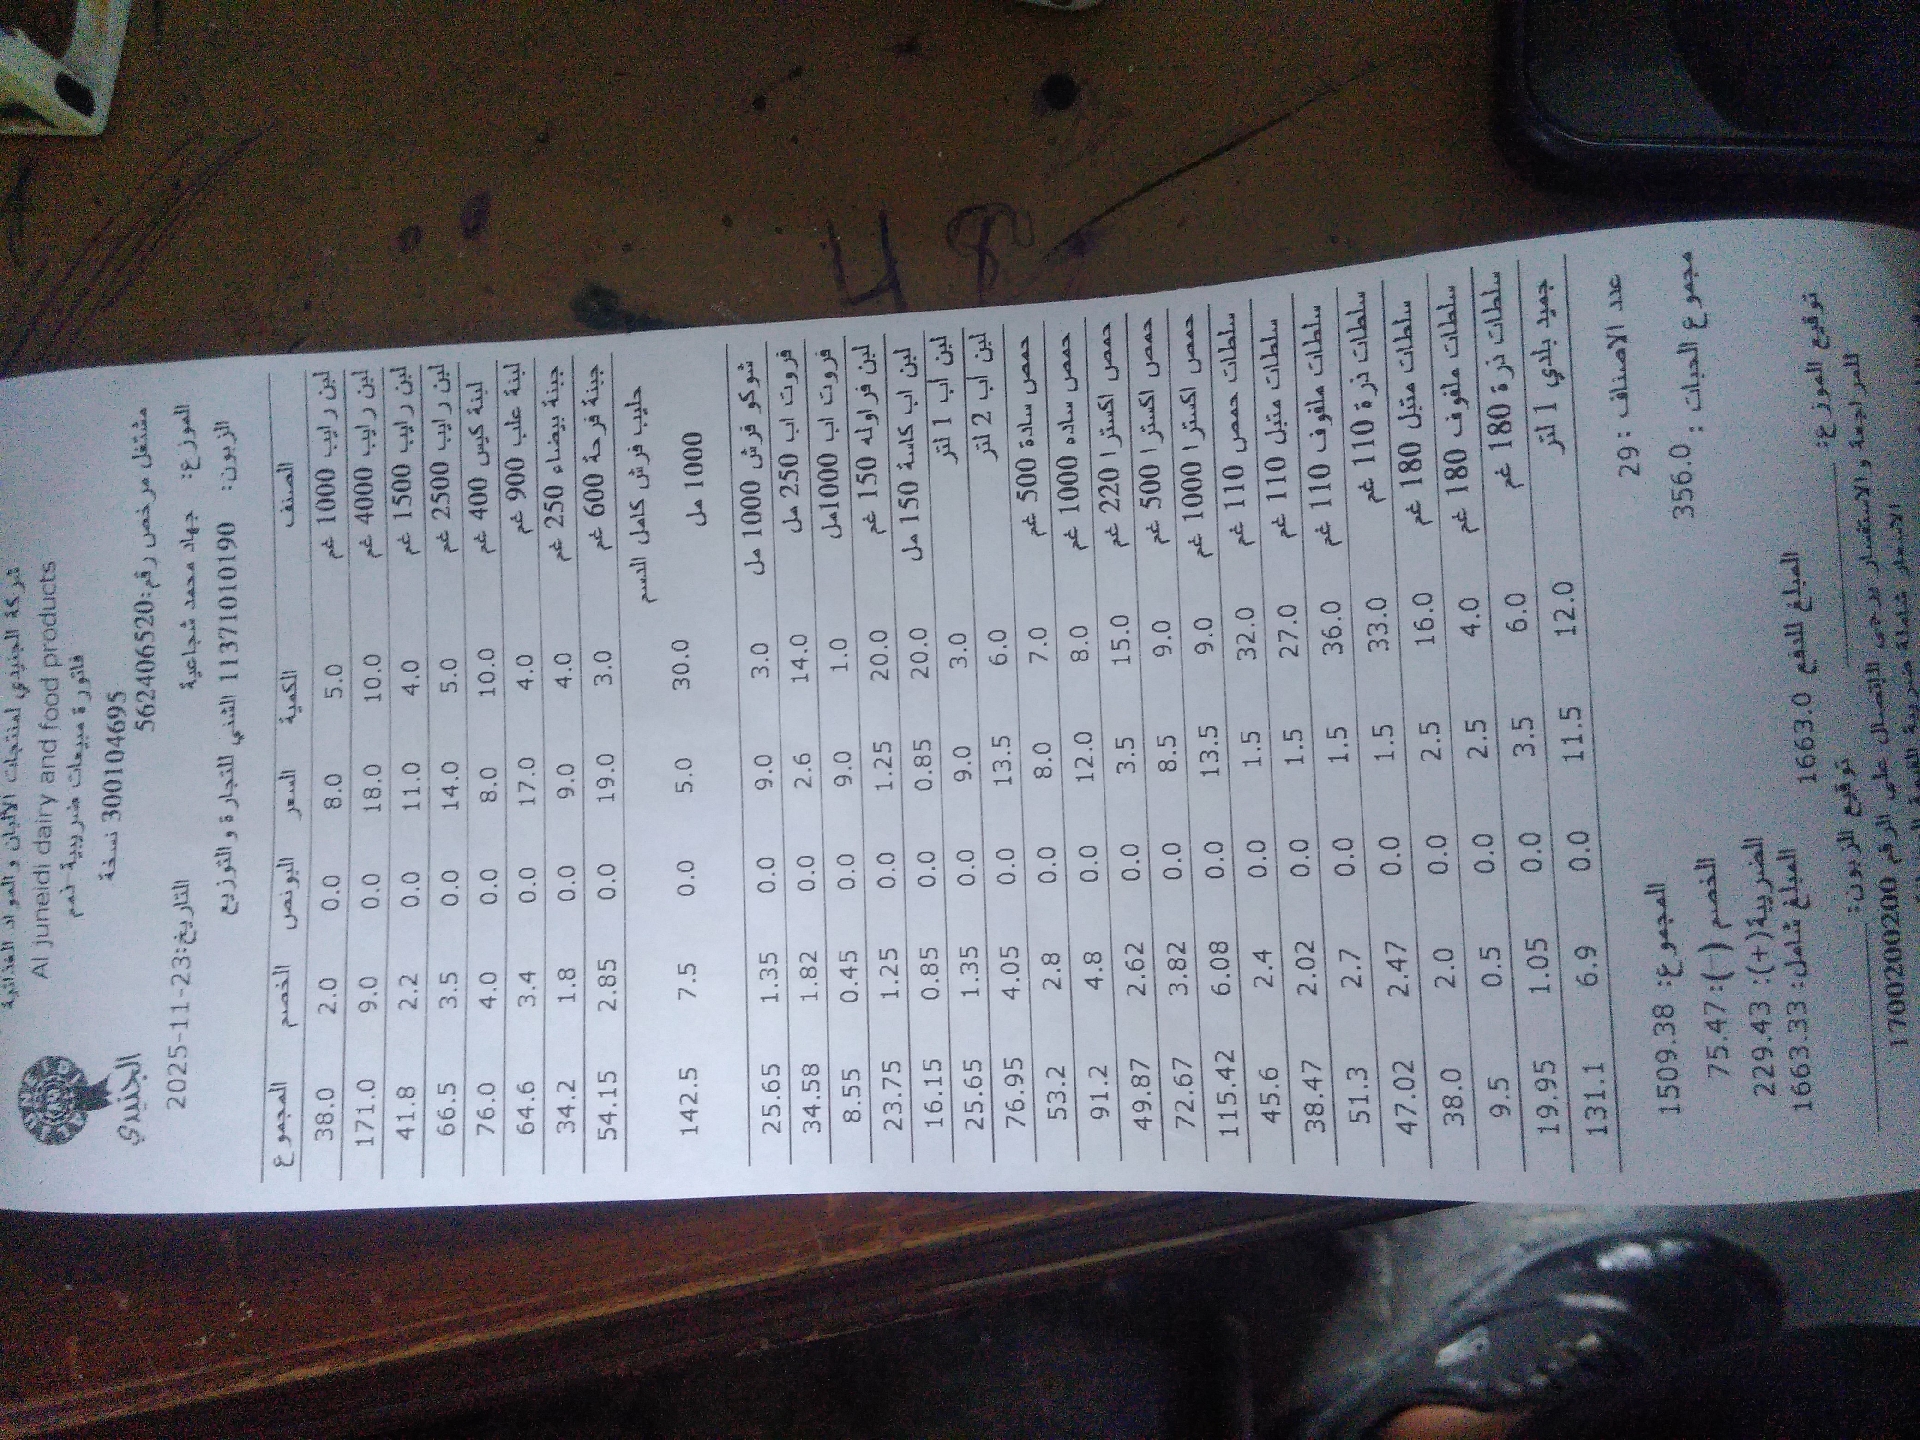 شركة الجنيدي لمنتجات الألبان والمواد الغذائية
Al juneidi dairy and food products
فاتورة مبيعات ضريبية ذمم
300104695 نسخة
الجنيدي
مشتغل مرخص رقم:562406520
الموزع: جهاد محمد شجاعية التاريخ:23-11-2025
الزبون: 11371010190 الشني للتجارة والتوزيع
الصنف الكمية السعر البونص الخصم المجموع
لبن رايب 1000 غم 5.0 8.0 0.0 2.0 38.0
لبن رايب 4000 غم 10.0 18.0 0.0 9.0 171.0
لبن رايب 1500 غم 4.0 11.0 0.0 2.2 41.8
لبن رايب 2500 غم 5.0 14.0 0.0 3.5 66.5
لبنة كيس 400 غم 10.0 8.0 0.0 4.0 76.0
لبنة علب 900 غم 4.0 17.0 0.0 3.4 64.6
جبنة بيضاء 250 غم 4.0 9.0 0.0 1.8 34.2
جبنة فرحة 600 غم 3.0 19.0 0.0 2.85 54.15
حليب فرش كامل الدسم
1000 مل 30.0 5.0 0.0 7.5 142.5
شوكو فرش 1000 مل 3.0 9.0 0.0 1.35 25.65
فروت اب 250 مل 14.0 2.6 0.0 1.82 34.58
فروت اب 1000مل 1.0 9.0 0.0 0.45 8.55
لبن فراوله 150 غم 20.0 1.25 0.0 1.25 23.75
لبن اب كاسة 150 مل 20.0 0.85 0.0 0.85 16.15
لبن اب 1 لتر 3.0 9.0 0.0 1.35 25.65
لبن اب 2 لتر 6.0 13.5 0.0 4.05 76.95
حمص سادة 500 غم 7.0 8.0 0.0 2.8 53.2
حمص ساده 1000 غم 8.0 12.0 0.0 4.8 91.2
حمص اكسترا 220 غم 15.0 3.5 0.0 2.62 49.87
حمص اكسترا 500 غم 9.0 8.5 0.0 3.82 72.67
حمص اكسترا 1000 غم 9.0 13.5 0.0 6.08 115.42
سلطات حمص 110 غم 32.0 1.5 0.0 2.4 45.6
سلطات متبل 110 غم 27.0 1.5 0.0 2.02 38.47
سلطات ملفوف 110 غم 36.0 1.5 0.0 2.7 51.3
سلطات ذرة 110 غم 33.0 1.5 0.0 2.47 47.02
سلطات متبل 180 غم 16.0 2.5 0.0 2.0 38.0
سلطات ملفوف 180 غم 4.0 2.5 0.0 0.5 9.5
سلطات ذرة 180 غم 6.0 3.5 0.0 1.05 19.95
جميد بلدي 1 لتر 12.0 11.5 0.0 6.9 131.1
عدد الاصناف : 29 المجموع: 1509.38
مجموع الحبات : 356.0 الخصم (-):75.47
الضريبة(+): 229.43
المبلغ للدفع 1663.0 المبلغ شامل: 1663.33
توقيع الموزع: توقيع الزبون:
للمراجعة والاستفسار يرجى الإتصال على الرقم 1700200200